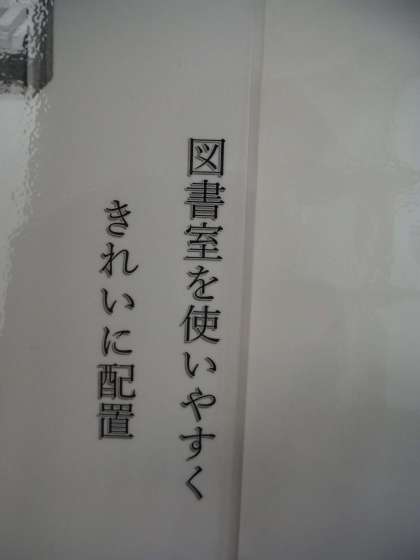 図書室を使いやすく
きれいに配置